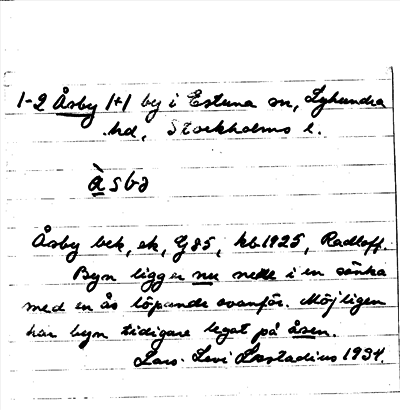 1-2 Åsby 1+1 by i Estuna sn, Lyhundra
hd, Stockholms l.
àsbə
Åsby bek, ek, G85, kb.1925, Radloff.
Byn ligger nu nede i en sänka
med en ås löpande ovanför. Möjligen
har byn tidigare legat på åsen.
Lars-Levi Læstadius 1934.